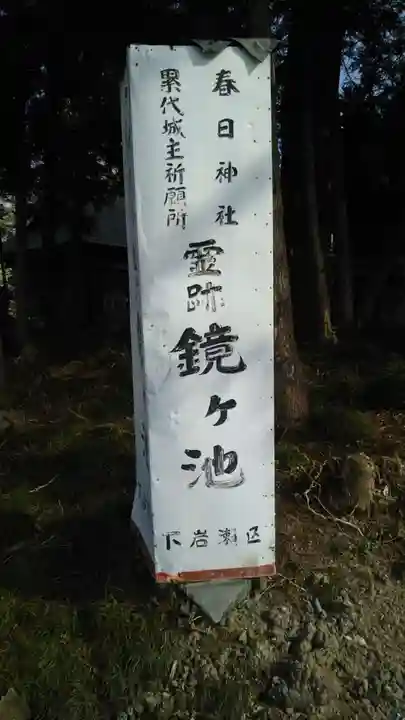 春日神社
累代城主祈願所
霊跡
鏡ヶ池
下岩瀬区